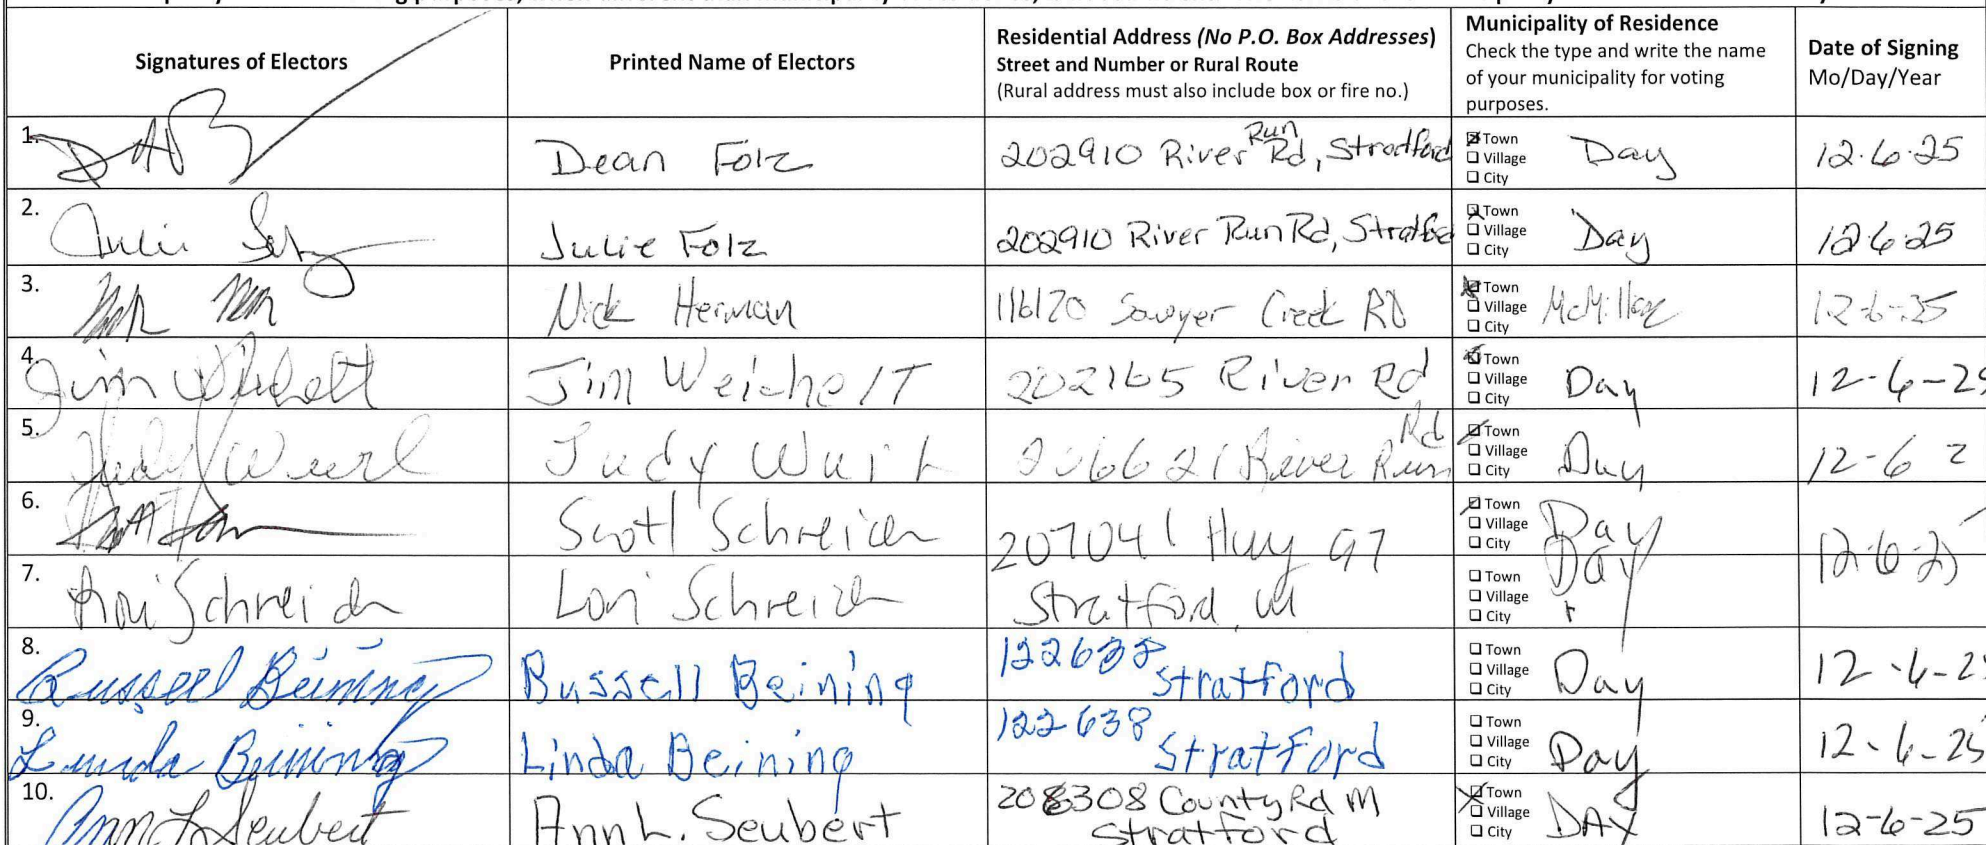 Signatures of Electors
Printed Name of Electors
Residential Address (No P.O. Box Addresses)
Street and Number or Rural Route
(Rural address must also include box or fire no.)
Municipality of Residence
Check the type and write the name
of your municipality for voting
purposes.
Date of Signing
Mo/Day/Year
1. Dean Folz 202910 River Run Rd, Stratford Town Village City Day 12.6.25
2. Julie Folz 202910 River Run Rd, Stratford Town Village City Day 12.6.25
3. Nick Herman 116120 Sawyer Creek RD Town Village City McMillan 12-6-25
4. Jim Weichelt Jim WeichelT 202165 River Rd Town Village City Day 12-6-25
5. Judy Wuerl Judy 206621 River Run Rd Town Village City Day 12-6 2
6. Scott Schreider 207041 Hwy 97 Town Village City Day 12-6-25
7. Lori Schreider Lori Schreider Stratford, WI Town Village City Day
8. Russell Beining Russell Beining Stratford Town Village City Day 12-6-25
9. Linda Beining Linda Beining 122638 Stratford Town Village City Day 12-6-25
10. Ann L Seubert Ann L. Seubert 208308 County Rd M Stratford Town Village City DAY 12-6-25